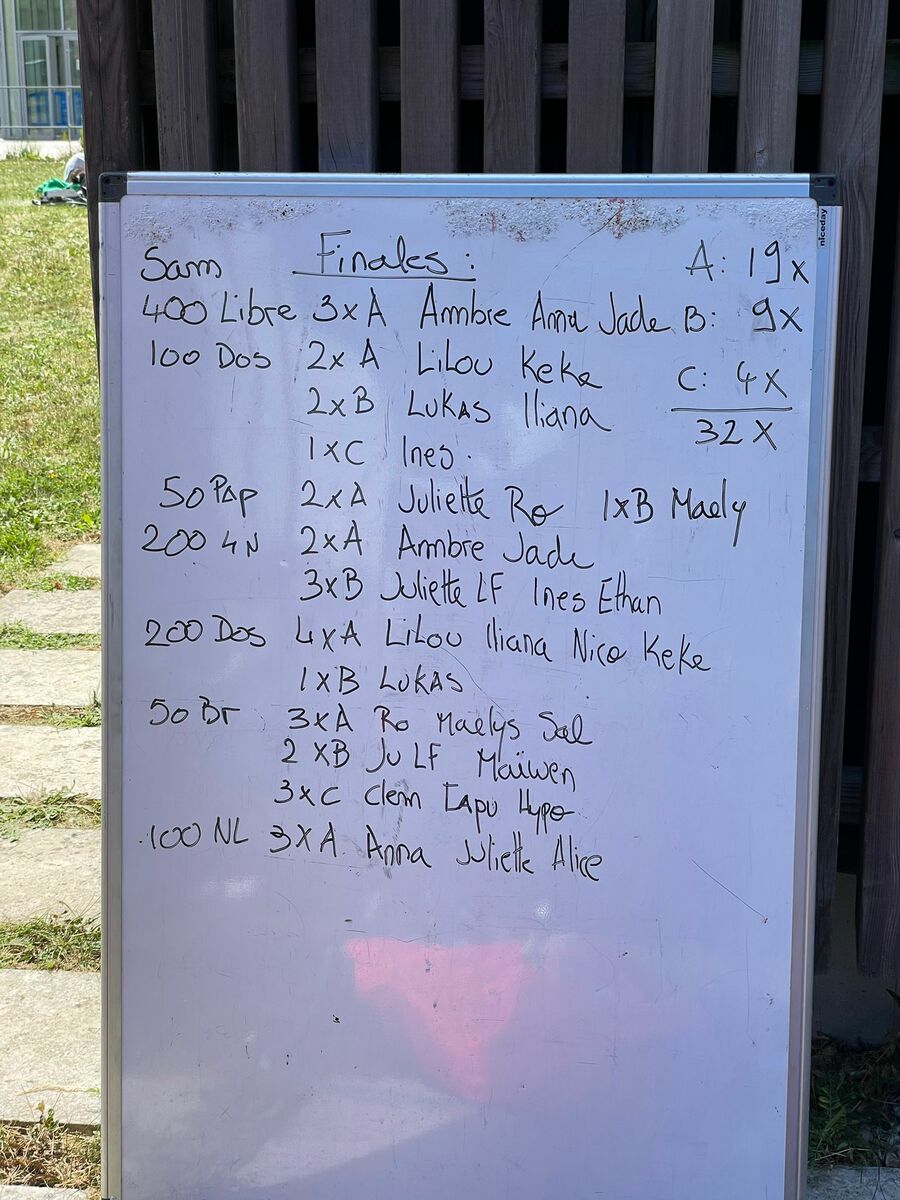 Sam Finales : A: 19x
400 Libre 3xA Ambre Anna Jade B: 9x
100 Dos 2xA LiLou Keke C: 4x
2xB LUKAS Iliana 32 X
1xC Ines.
50 PAp 2xA Juliette Ro 1xB Maely
200 4N 2xA Ambre Jade
3xB Juliette LF Ines Ethan
200 Dos 4xA LiLou Iliana Nico Keke
1xB LUKAS
50 Br 3xA Ro Maelys Sal
2 XB Ju LF Maïwen
3xC Clem Capu Hypo
100 NL 3XA Anna Juliette Alice
niceday